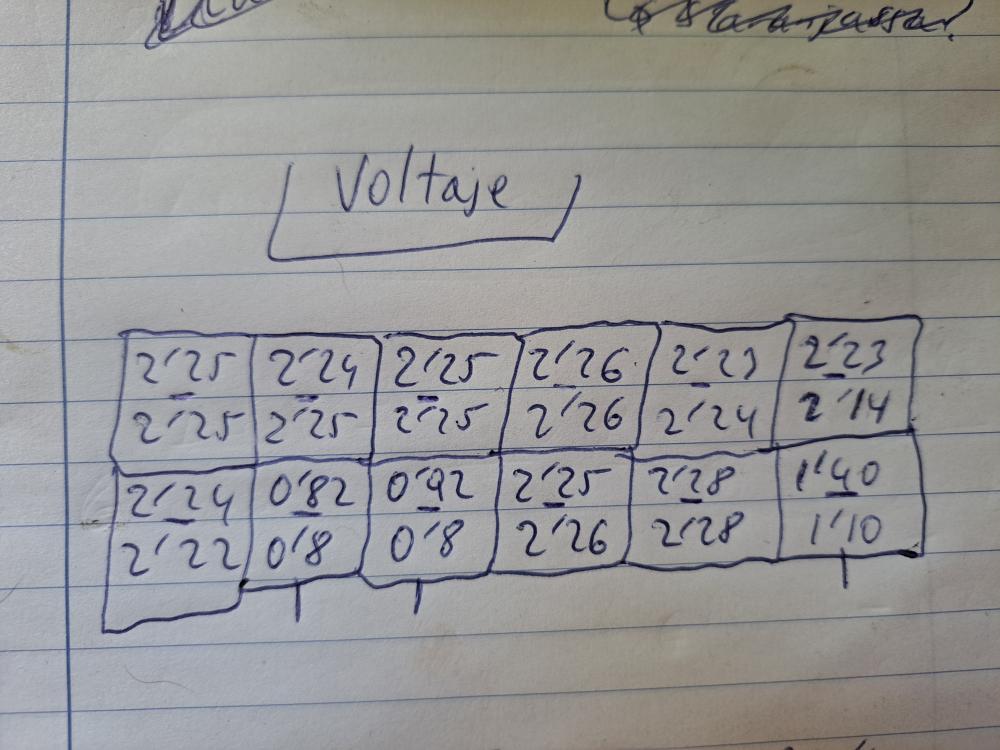 Voltaje
2'25 2'24 2'25 2'26 2'23 2'23
2'25 2'25 2'25 2'26 2'24 2'14
2'24 0'82 0'92 2'25 2'28 1'40
2'22 0'8 0'8 2'26 2'28 1'10